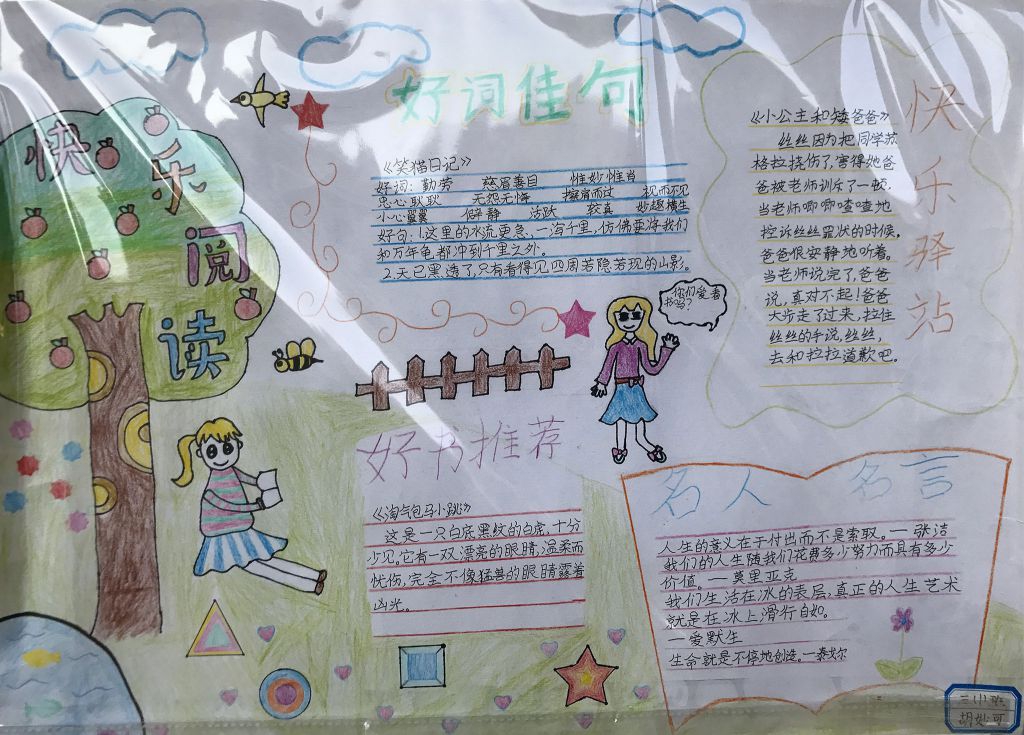 快乐阅读
好词佳句
《笑猫日记》
好词：勤劳 慈眉善目 惟妙惟肖
忠心耿耿 无怨无悔 擦肩而过 视而不见
小心翼翼 僻静 活跃 较真 妙趣横生
好句：1.这里的水流更急，一泻千里，仿佛要将我们
和万年龟都冲到千里之外。
2.天已黑透了，只有看得见四周若隐若现的山影。
你们爱看
书吗？
快乐驿站
《小公主和矮爸爸》
丝丝因为把同学苏
格拉挠伤了，害得她爸
爸被老师训斥了一顿，
当老师唧唧喳喳地
控诉丝丝罪状的时候，
爸爸很安静地听着。
当老师说完了，爸爸
说，真对不起！爸爸
大步走了过来，拉住
丝丝的手说，丝丝，
去和拉拉道歉吧。
好书推荐
《淘气包马小跳》
这是一只白底黑纹的白虎，十分
少见。它有一双漂亮的眼睛，温柔而
忧伤，完全不像猛兽的眼睛露着
凶光。
名人名言
人生的意义在于付出而不是索取。一张洁
我们的人生随我们花费多少努力而具有多少
价值。一莫里亚克
我们生活在冰的表层，真正的人生艺术
就是在冰上滑行自如。
一爱默生
生命就是不停地创造。一泰戈尔
三(1)班
胡妙可